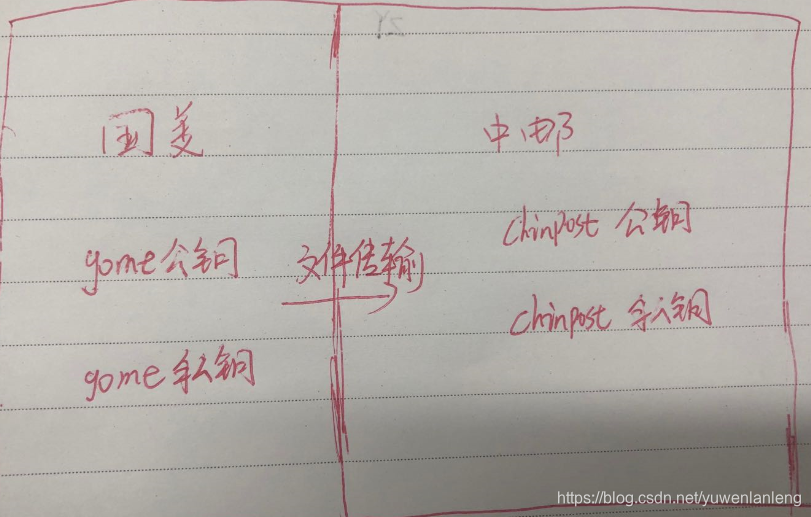 国美
中邮
gome公钥
文件传输
chinpost 公钥
gome私钥
chinpost 私钥
https://blog.csdn.net/yuwenlanleng